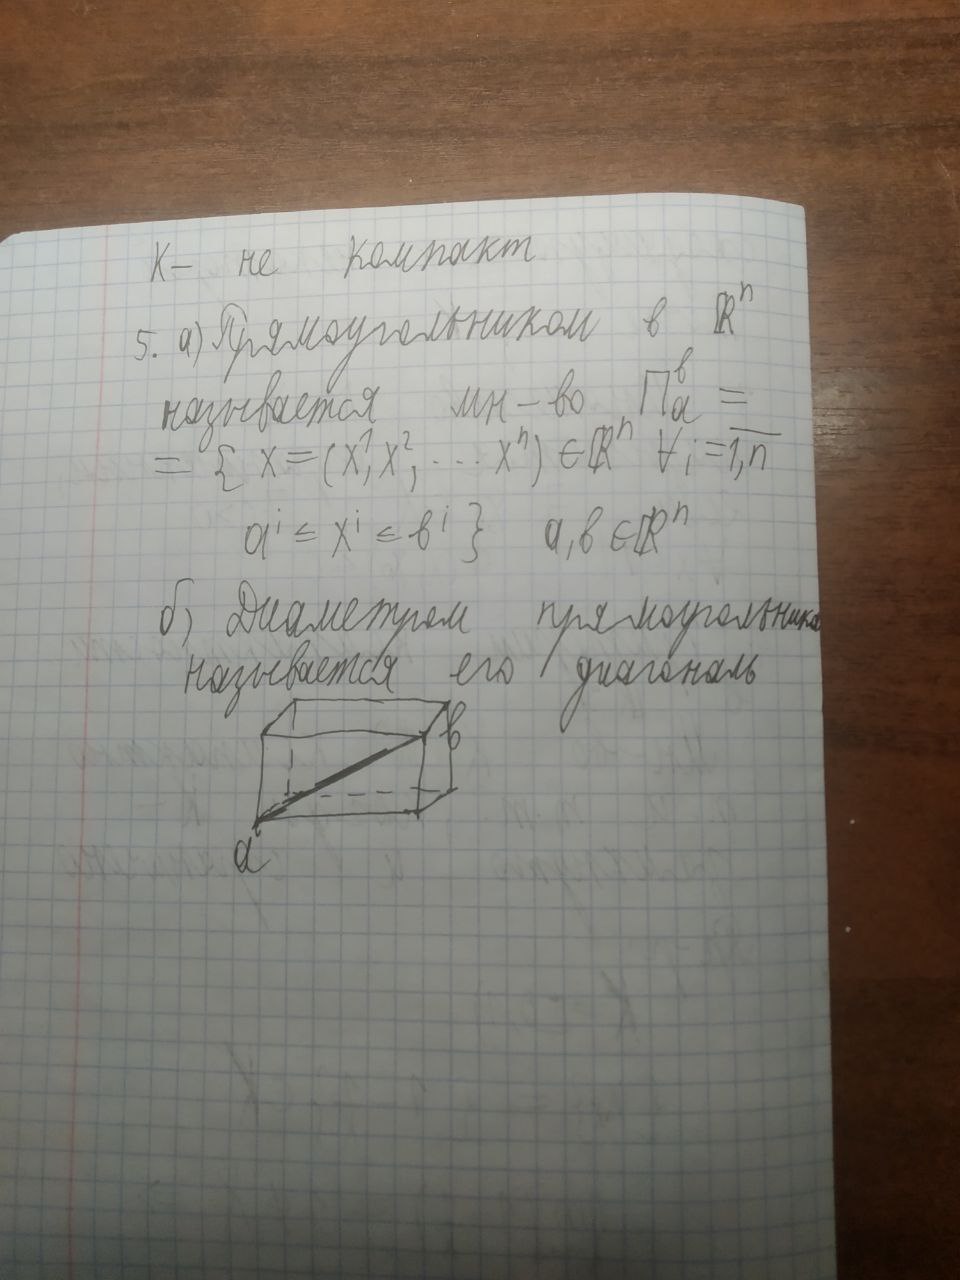 K – не компакт
5. а) Прямоугольником в ℝⁿ
называется мн-во Пₐᵇ =
= { x = (x¹, x², ... xⁿ) ∈ ℝⁿ ∀ i = 1,n
aⁱ ≤ xⁱ ≤ bⁱ } a, b ∈ ℝⁿ
б) Диаметром прямоугольника
называется его диагональ
b
a